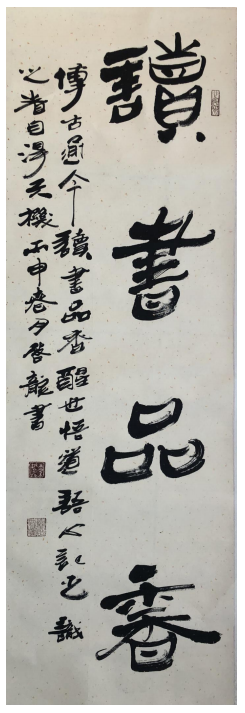 讀書品香
博古通今讀書品香醒世悟道語人記之識
之者自得天機丙申春月啓龍書